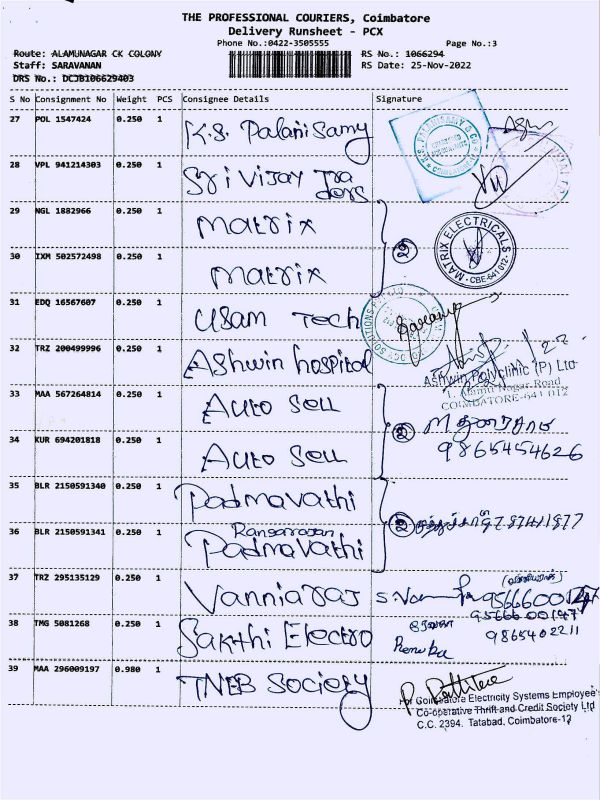 THE PROFESSIONAL COURIERS, Coimbatore
Delivery Runsheet - PCX
Phone No.:0422-3505555 Page No.:3
Route: ALAMUNAGAR CK COLONY RS No.: 1066294
Staff: SARAVANAN RS Date: 25-Nov-2022
DRS No.: DCJB106629403
S No Consignment No Weight PCS Consignee Details Signature
27 POL 1547424 0.250 1 K.S. Palanisamy
28 VPL 941214303 0.250 1 Sri Vijay Traders
29 NGL 1882966 0.250 1 Matrix
MATRIX ELECTRICALS
CBE-641 012
30 IXM 502572498 0.250 1 Matrix
2
31 EDQ 16567607 0.250 1 Usam Tech
32 TRZ 200499996 0.250 1 Ashwin hospital
Ashwin Polyclinic (P) Ltd
1, Alamu Nagar Road
COIMBATORE-641 012
33 MAA 567264814 0.250 1 Auto Sell
2
34 KUR 694201818 0.250 1 Auto Sell 9865454626
35 BLR 2150591340 0.250 1 Padmavathi
2
36 BLR 2150591341 0.250 1 Padmavathi
37 TRZ 295135129 0.250 1 Vanniaraj 9566600147
9566600147
38 TMG 5081268 0.250 1 Sakthi Electro Renuka 9865402211
39 MAA 296009197 0.980 1 TNEB Society
For Coimbatore Electricity Systems Employee's
Co-operative Thrift and Credit Society Ltd
C.C. 2394, Tatabad, Coimbatore-12